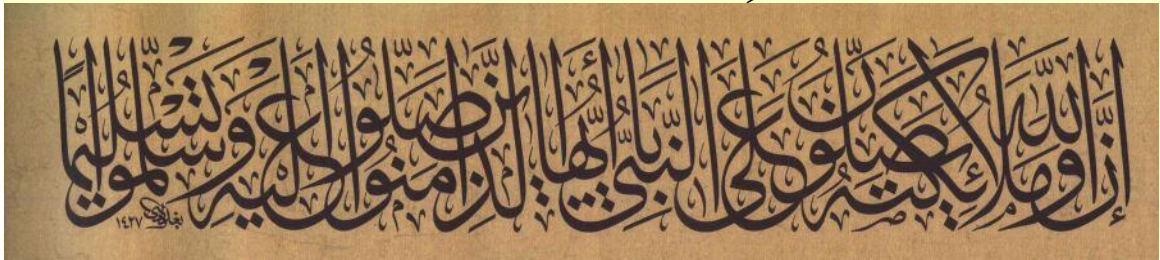 إِنَّ اللَّهَ وَمَلَائِكَتَهُ يُصَلُّونَ عَلَى النَّبِيِّ يَا أَيُّهَا الَّذِينَ آمَنُوا صَلُّوا عَلَيْهِ وَسَلِّمُوا تَسْلِيمًا
١٤٢٧